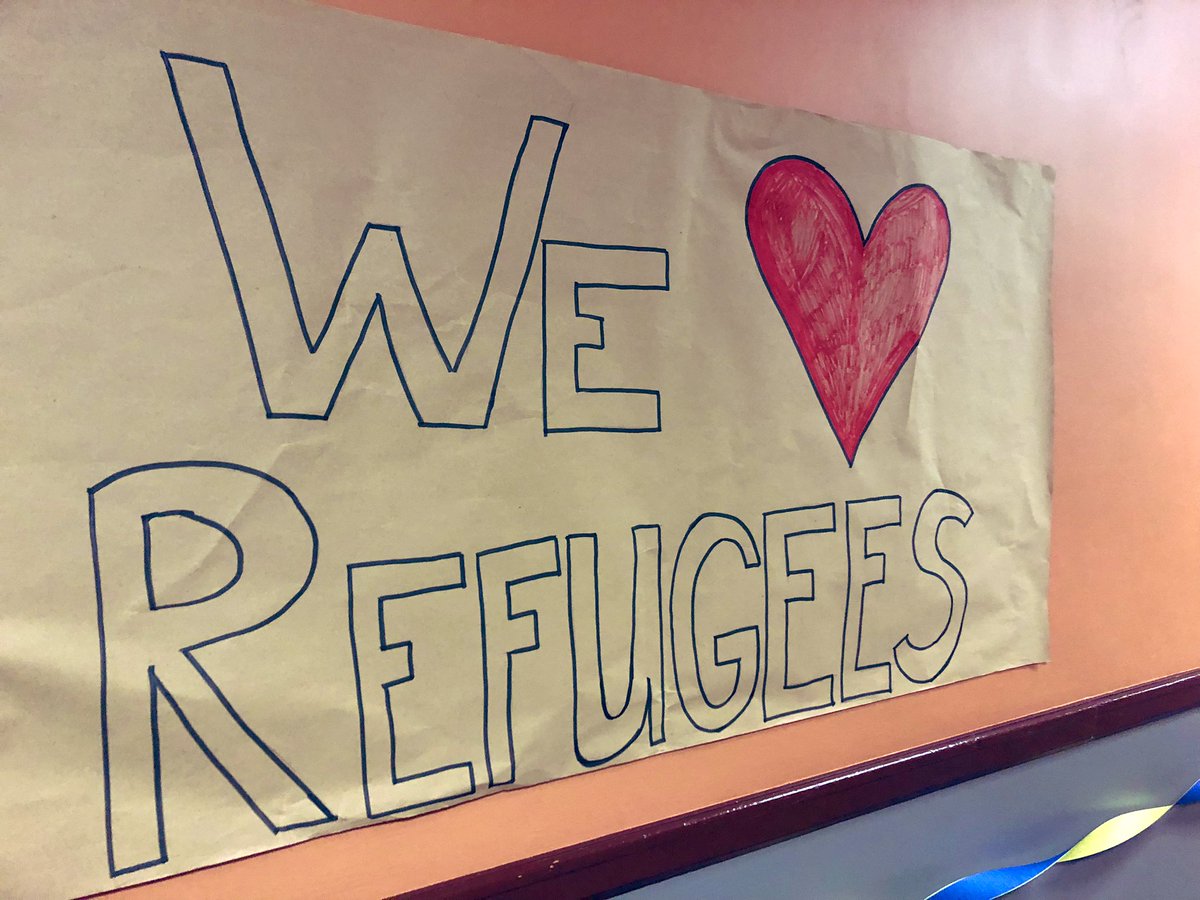 WE ❤
REFUGEES